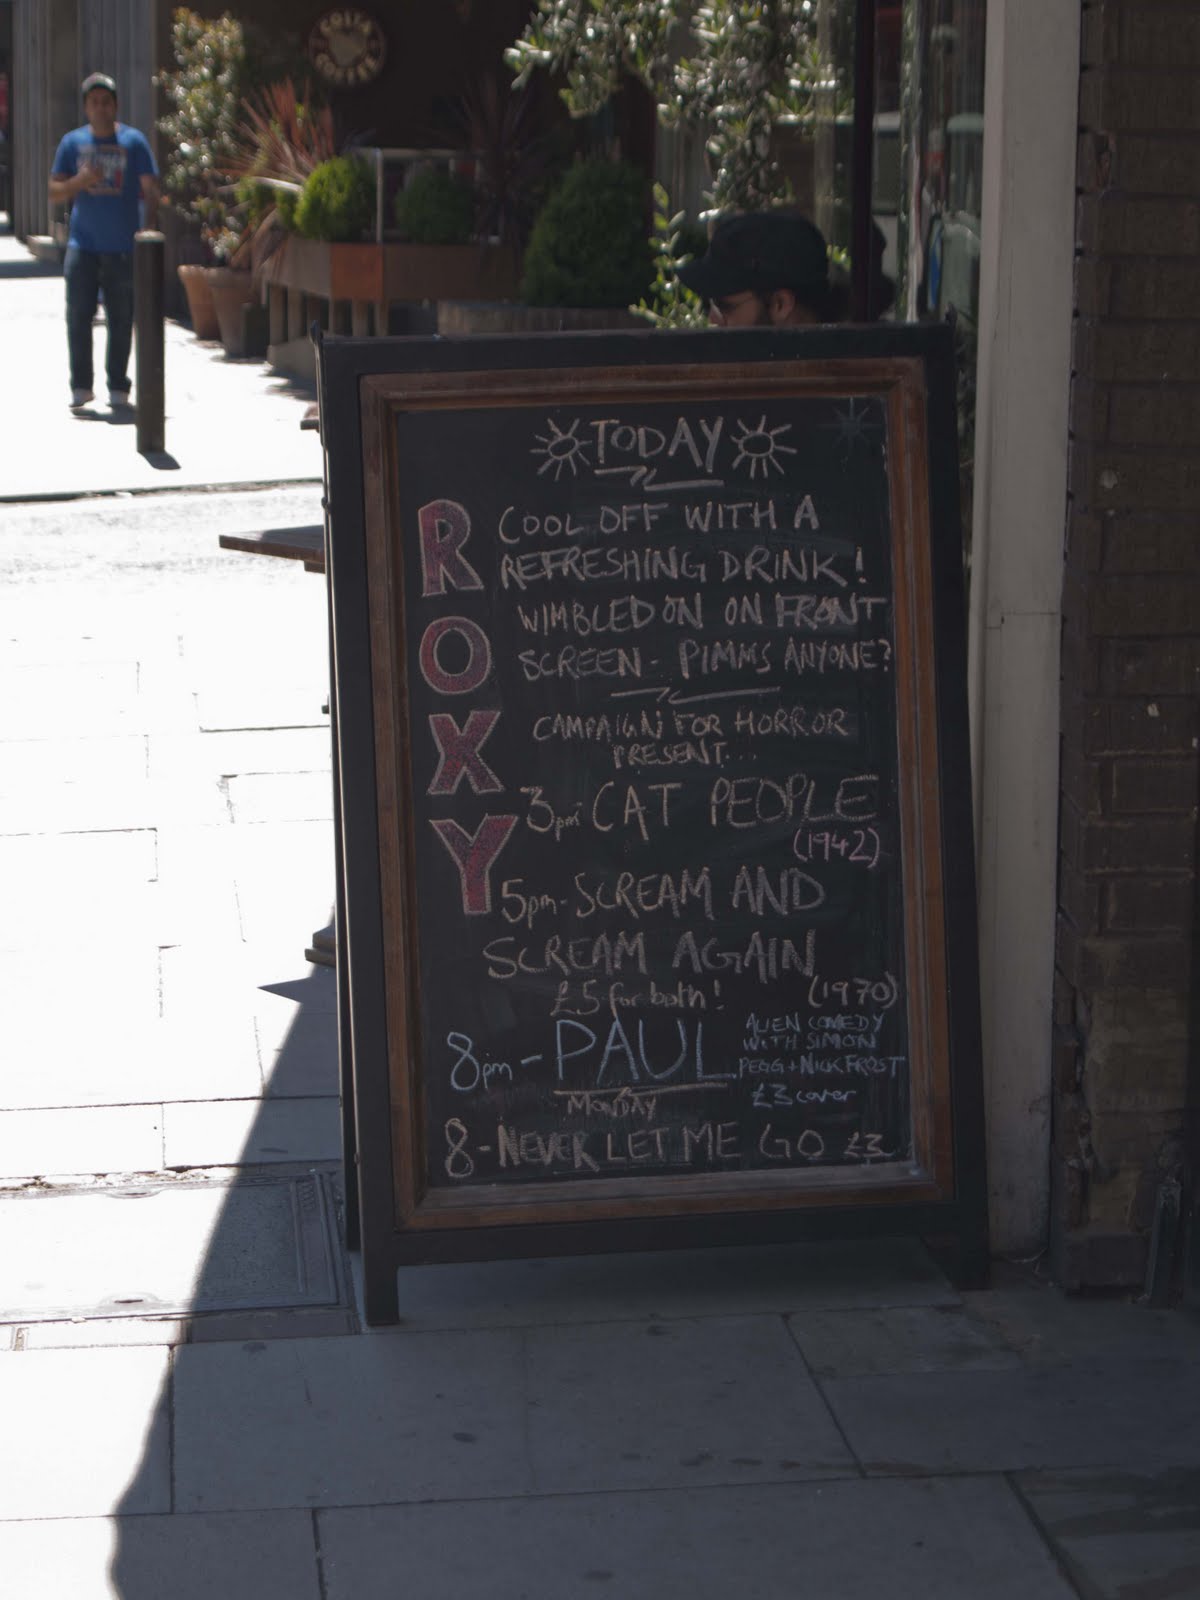 COSTA
COFFEE
TODAY
ROXY
COOL OFF WITH A
REFRESHING DRINK!
WIMBLEDON ON FRONT
SCREEN - PIMMS ANYONE?
CAMPAIGN FOR HORROR
PRESENT...
3pm CAT PEOPLE
(1942)
5pm - SCREAM AND
SCREAM AGAIN
(1970)
£5 for both!
8pm - PAUL
ALIEN COMEDY
WITH SIMON
PEGG + NICK FROST
£3 cover
MONDAY
8 - NEVER LET ME GO £3